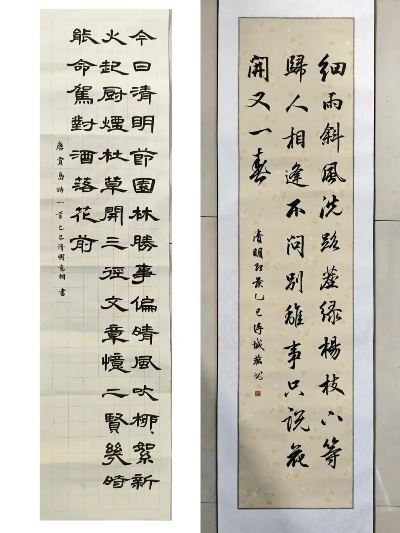 今日清明節園林勝事偏晴風吹柳絮新
火起廚煙杜草開三徑文章憶二賢幾時
能命駕對酒落花前
唐賈島詩一首乙巳清明書
細雨斜風洗路塵綠楊枝下等
歸人相逢不問別離事只說花
開又一春
清明即景乙巳